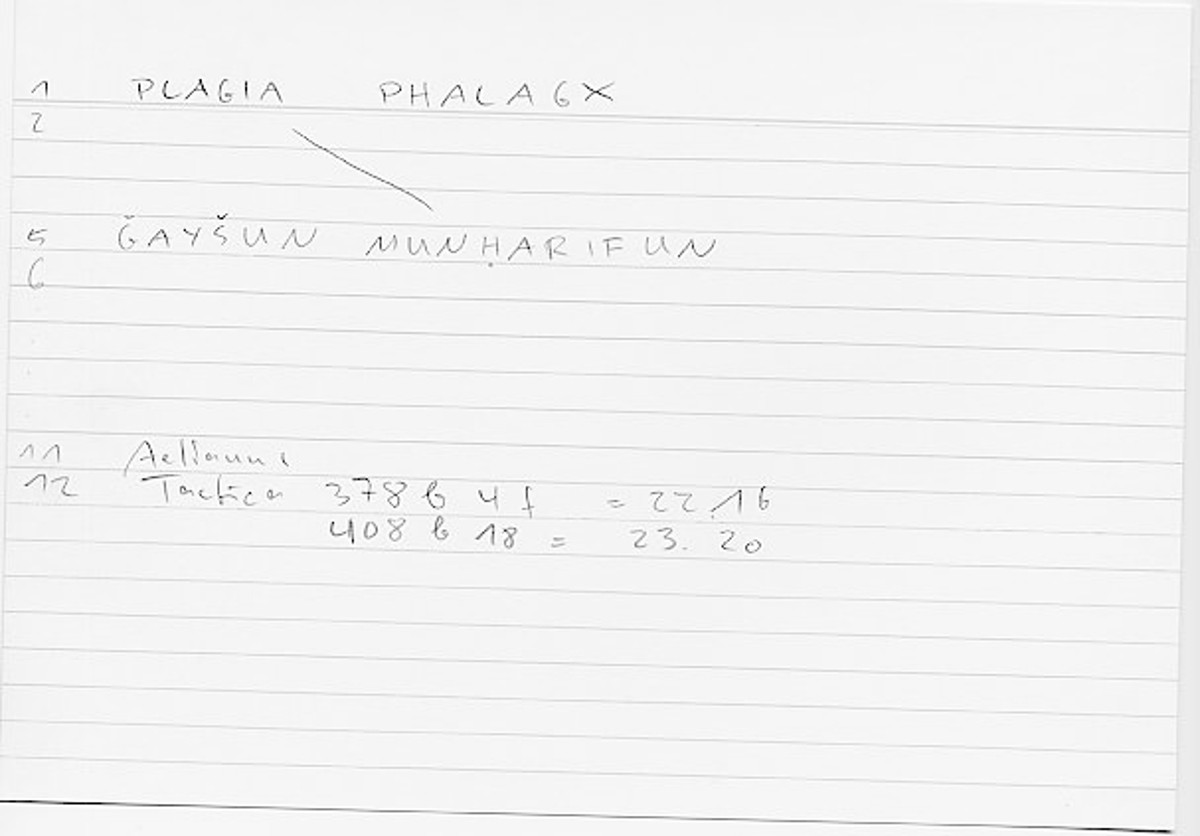 1 PLAGIA PHALAGX
2
5 ǦAYŠUN MUNḤARIFUN
6
11 Aelianus
12 Tactica 378 b 4 f = 22.16
408 b 18 = 23. 20